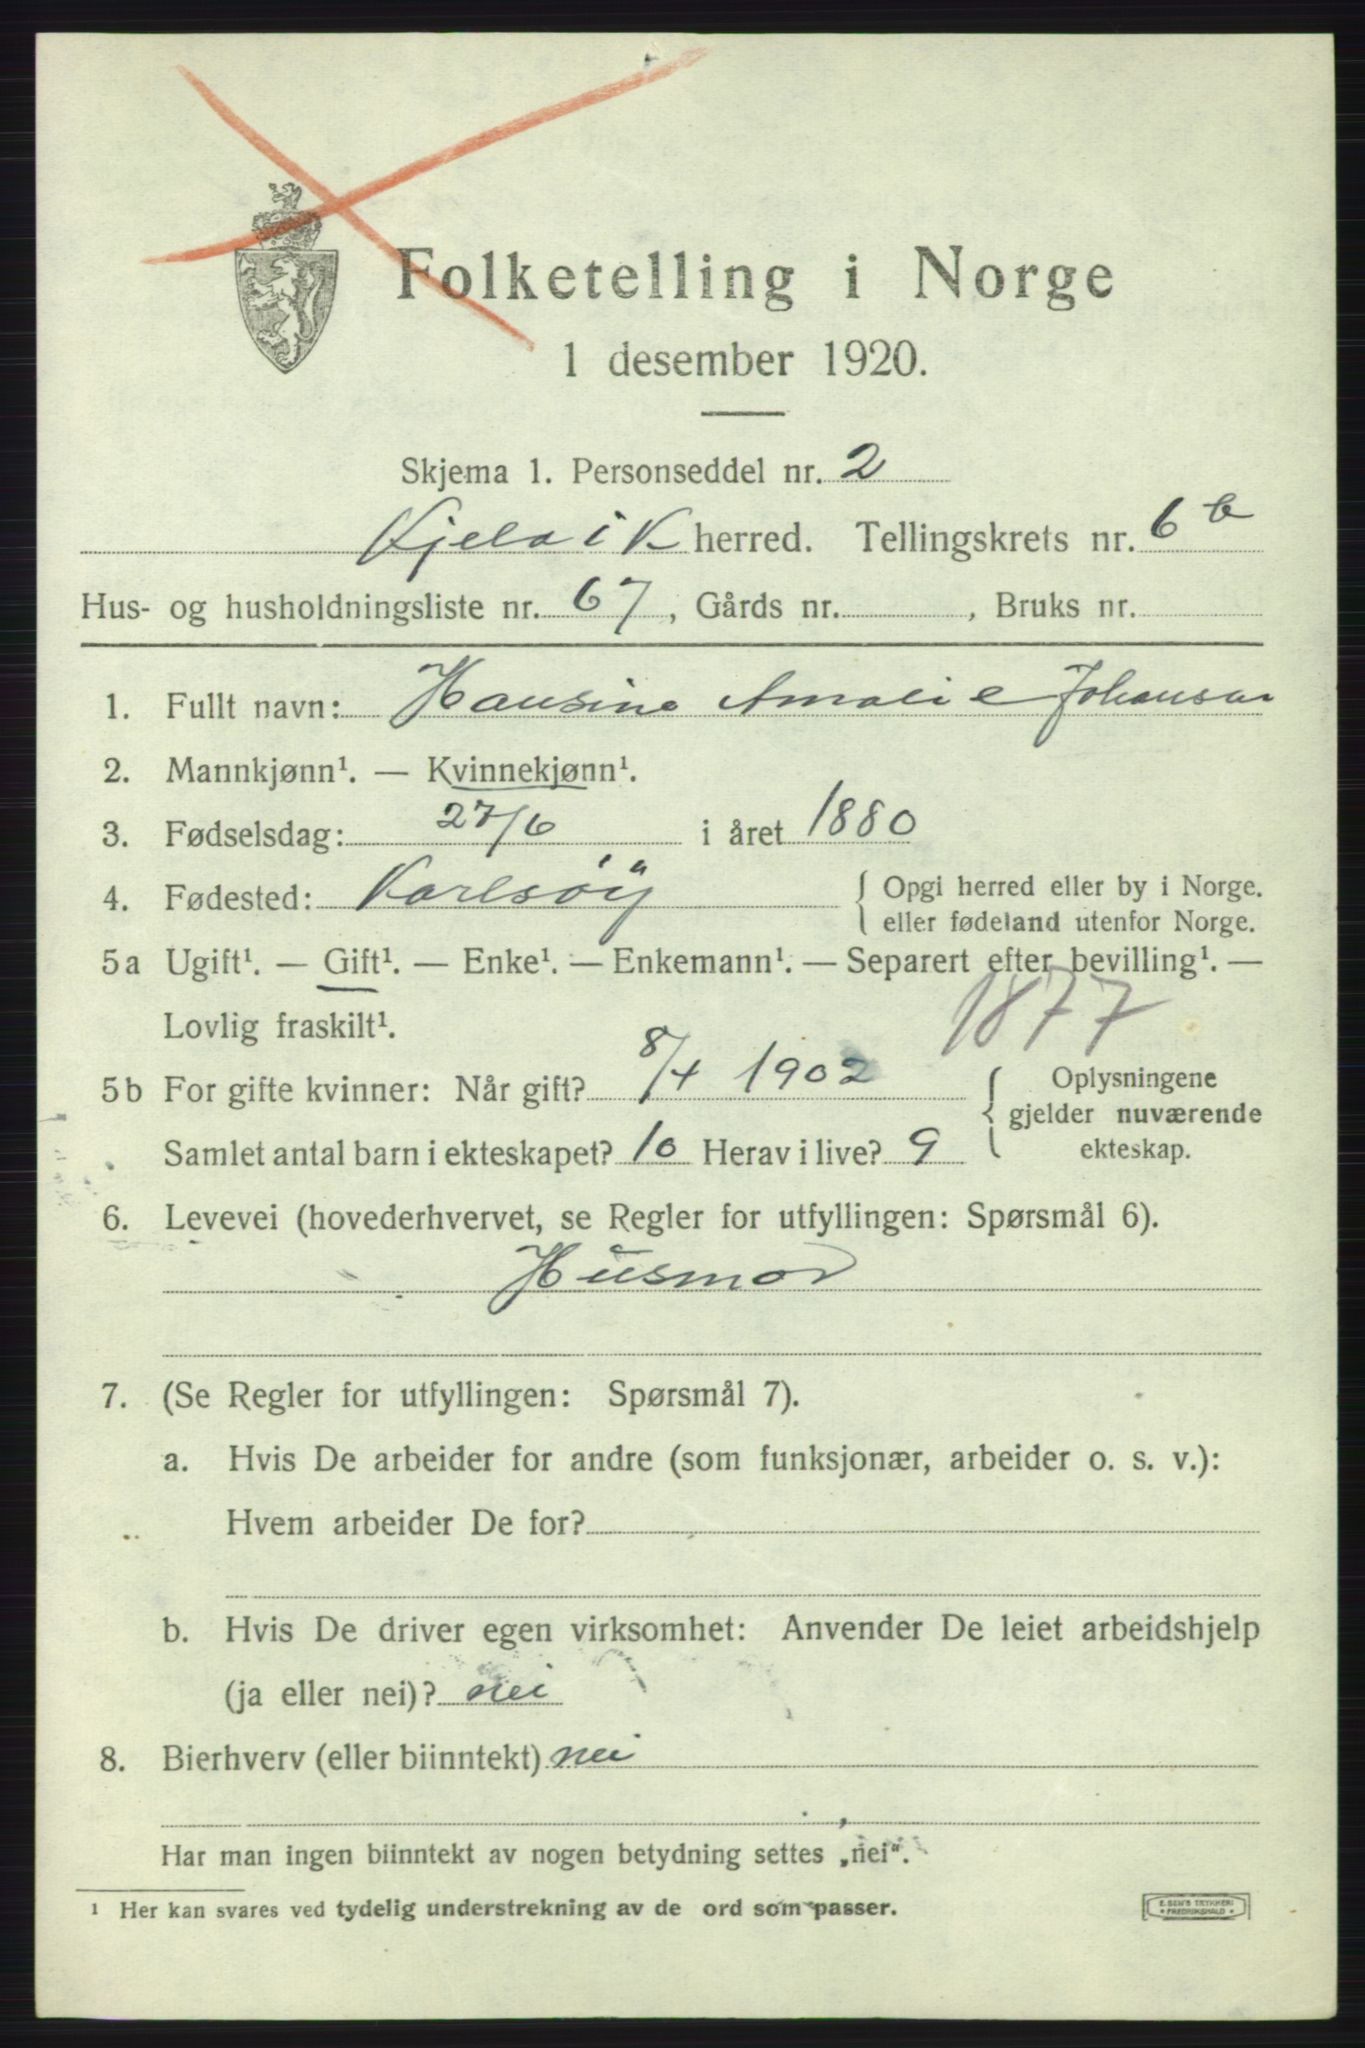 Folketelling i Norge
1 desember 1920.
Skjema 1. Personseddel nr. 2
Kjelvik herred. Tellingskrets nr. 6 b
Hus- og husholdningsliste nr. 67, Gårds nr. , Bruks nr.
1. Fullt navn: Hansine Amalie Johansen
2. Mannkjønn¹. — Kvinnekjønn¹.
3. Fødselsdag: 27/6 i året 1880
4. Fødested: Karlsöy { Opgi herred eller by i Norge.
eller fødeland utenfor Norge.
5a Ugift¹. — Gift¹. — Enke¹. — Enkemann¹. — Separert efter bevilling¹. —
Lovlig fraskilt¹. 1877
5b For gifte kvinner: Når gift? 8/4 1902 { Oplysningene
gjelder nuværende
Samlet antal barn i ekteskapet? 10 Herav i live? 9 ekteskap.
6. Levevei (hovederhvervet, se Regler for utfyllingen: Spørsmål 6).
Husmor
7. (Se Regler for utfyllingen: Spørsmål 7).
a. Hvis De arbeider for andre (som funksjonær, arbeider o. s. v.):
Hvem arbeider De for?
b. Hvis De driver egen virksomhet: Anvender De leiet arbeidshjelp
(ja eller nei)? nei
8. Bierhverv (eller biinntekt) nei
Har man ingen biinntekt av nogen betydning settes „nei“.
¹ Her kan svares ved tydelig understrekning av de ord som passer.
E. SEM'S TRYKKERI
• FREDRIKSHALD •